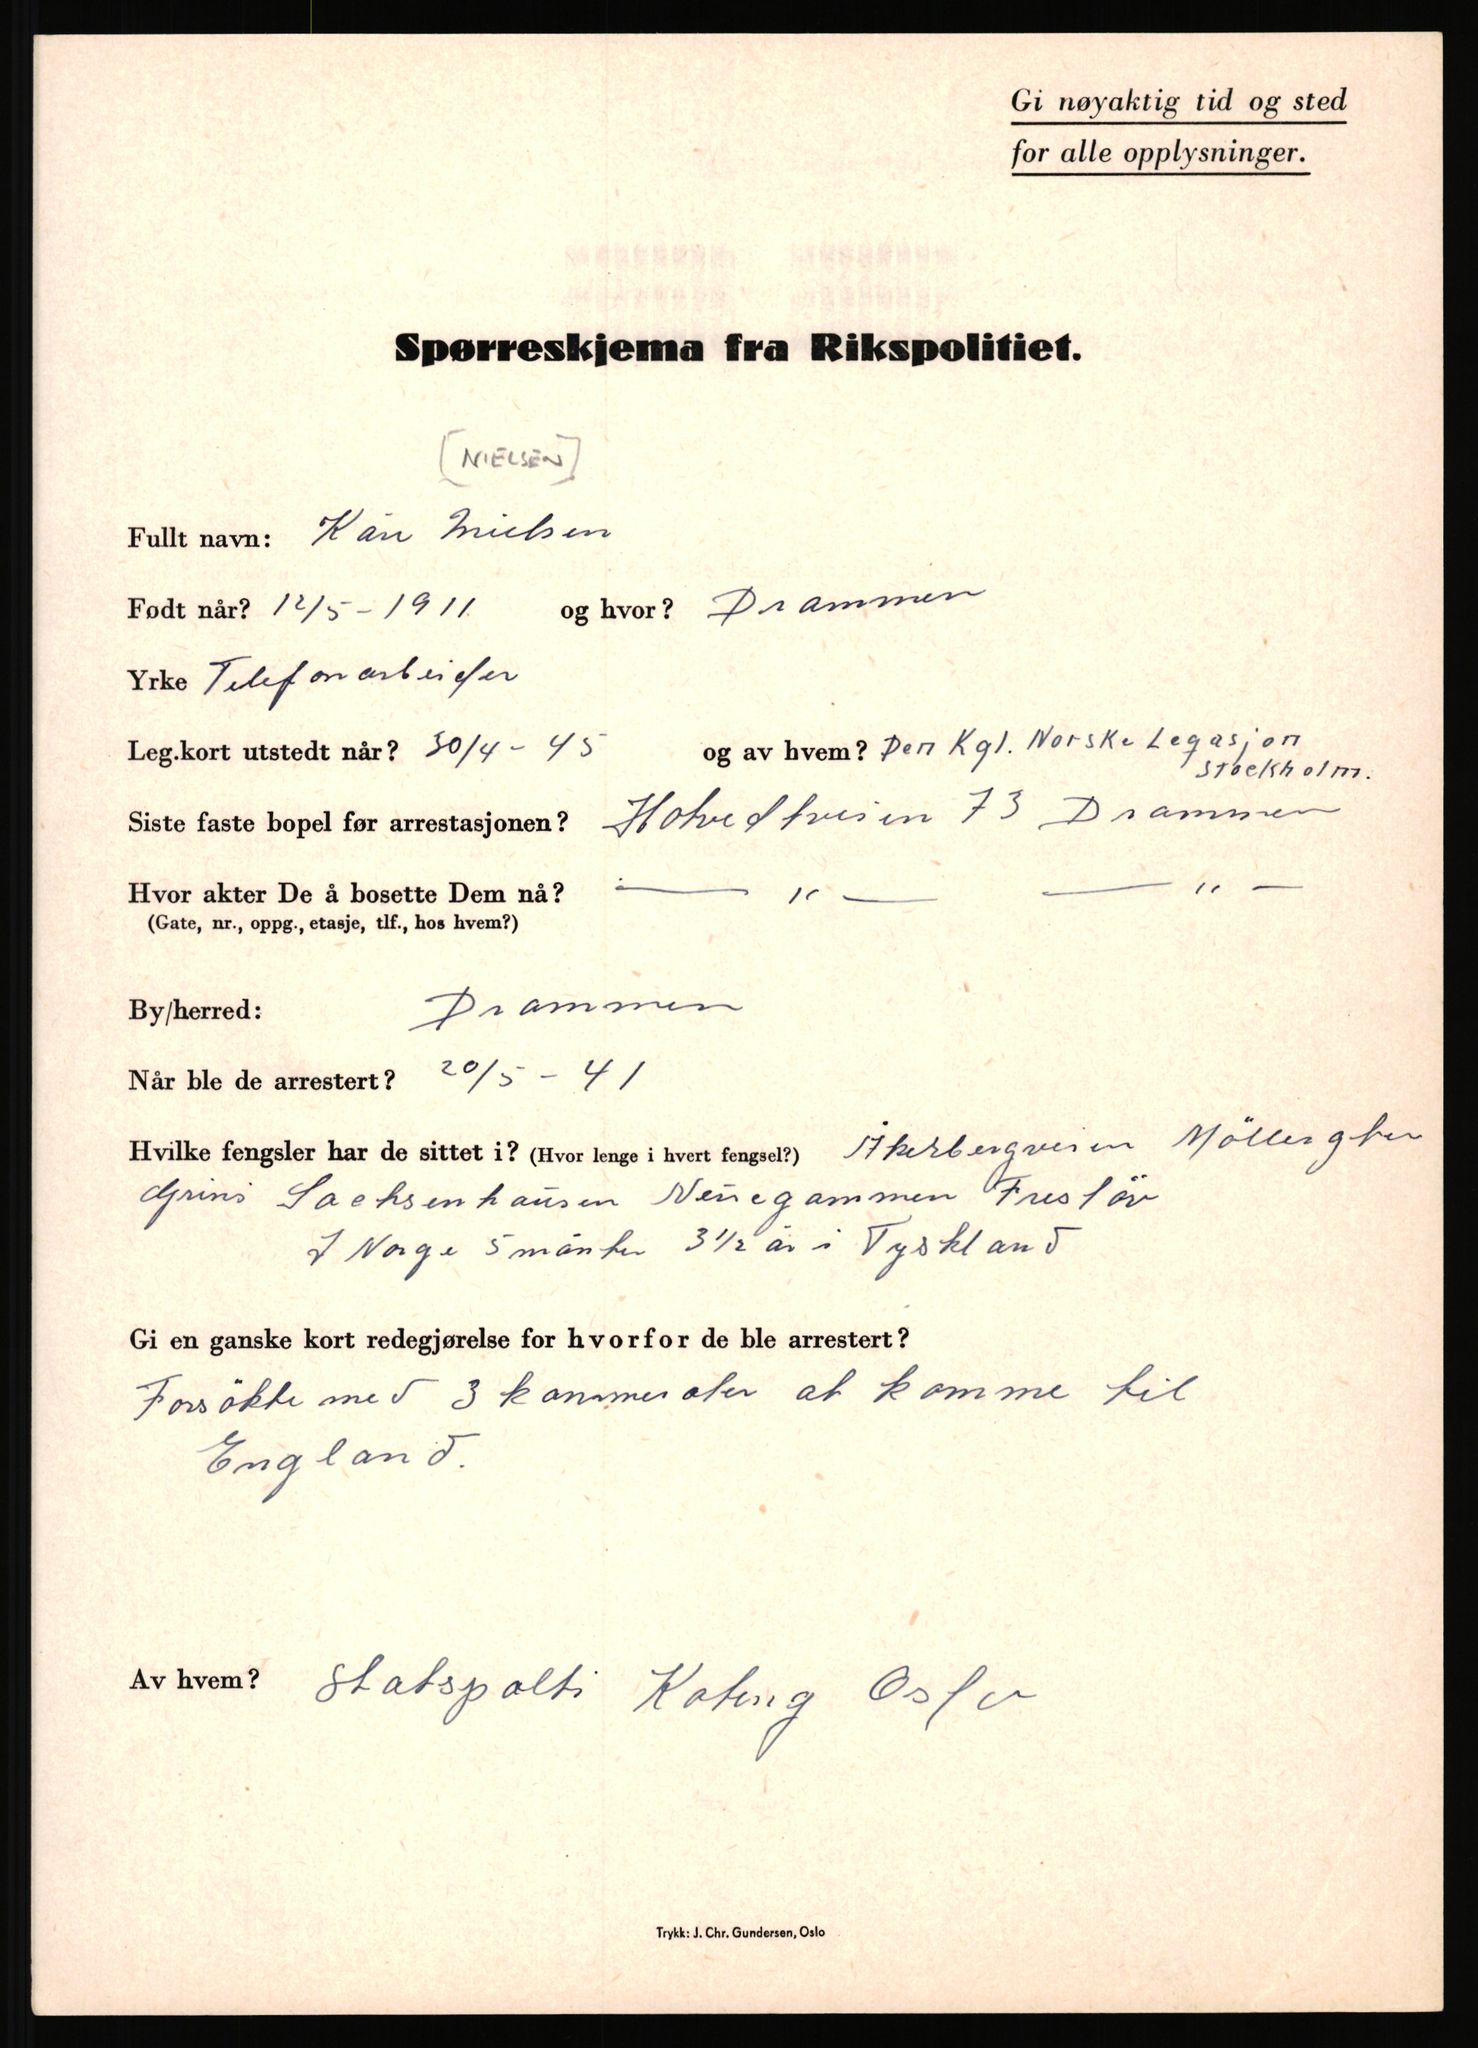 Gi nøyaktig tid og sted
for alle opplysninger.
Spørreskjema fra Rikspolitiet.
[NIELSEN]
Fullt navn: Kåre Nielsen
Født når? 12/5 - 1911 og hvor? Drammen
Yrke Telefonarbeider
Leg.kort utstedt når? 30/4 - 45 og av hvem? Den Kgl. Norske Legasjon
Stockholm.
Siste faste bopel før arrestasjonen? Hotvedtveien 73 Drammen
Hvor akter De å bosette Dem nå? — " — — " —
(Gate, nr., oppg., etasje, tlf., hos hvem?)
By/herred: Drammen
Når ble de arrestert? 20/5 - 41
Hvilke fengsler har de sittet i? (Hvor lenge i hvert fengsel?) Åkerbergveien Möllergten
Grini Sachsenhausen Neuegammen Fröslöv
I Norge 5 månter 3 1/2 år i Tyskland
Gi en ganske kort redegjørelse for hvorfor de ble arrestert?
Forsökte med 3 kammerater at komme til
England.
Av hvem? Statspolti Oslo
Trykk: J. Chr. Gundersen, Oslo